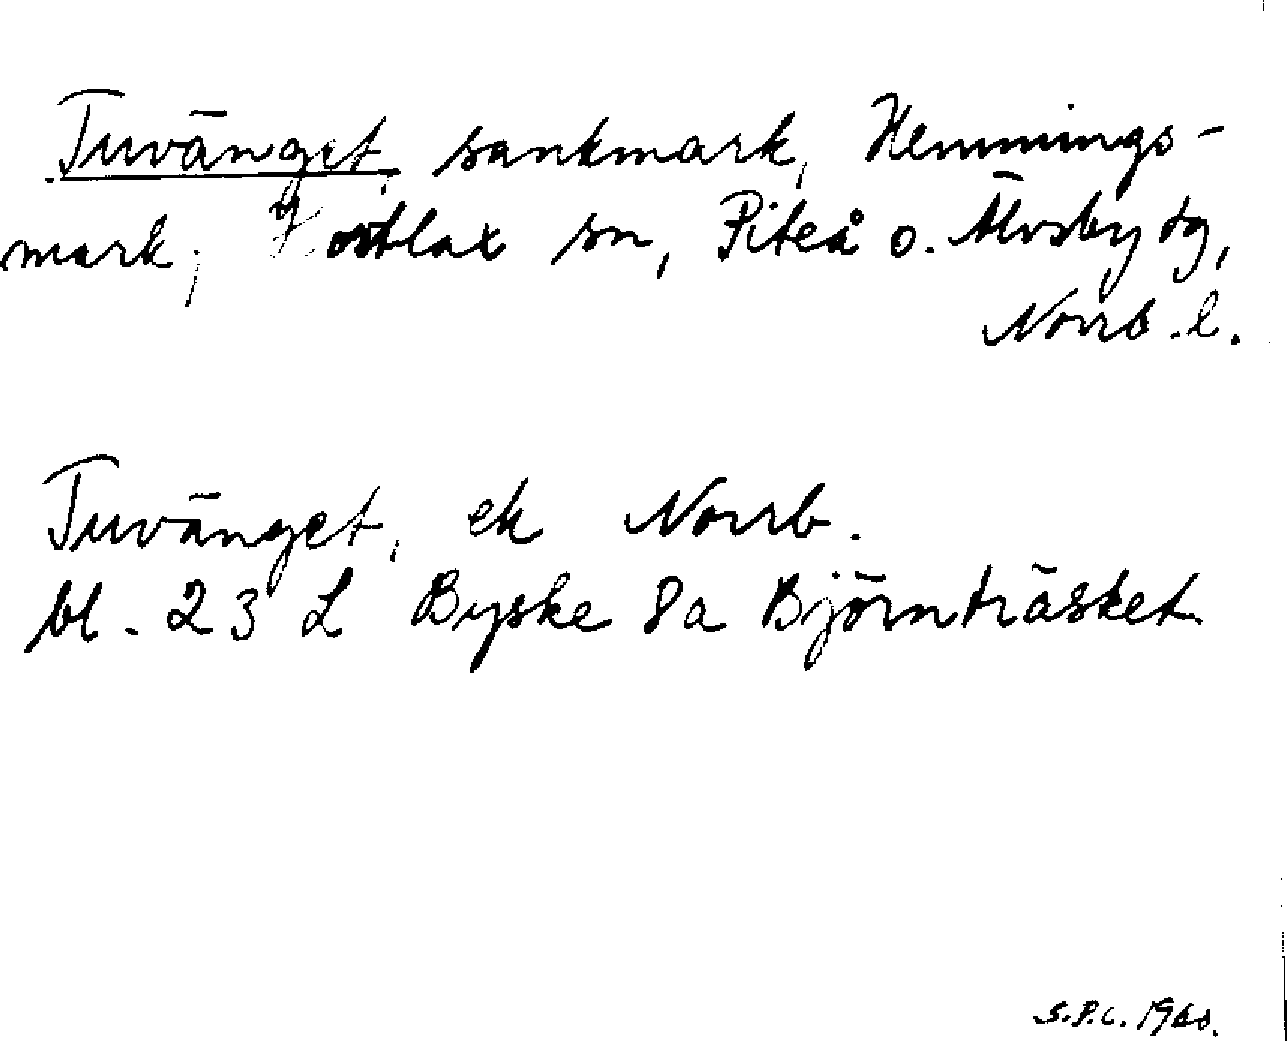 Tuvänget, sankmark, Hemmings-
mark, Hortlax sn, Piteå o. Älvsby tg,
Norrb. l.
Tuvänget, ek Norrb.
bl. 23 L Byske 8a Björnträsket
S.P.C. 1960.